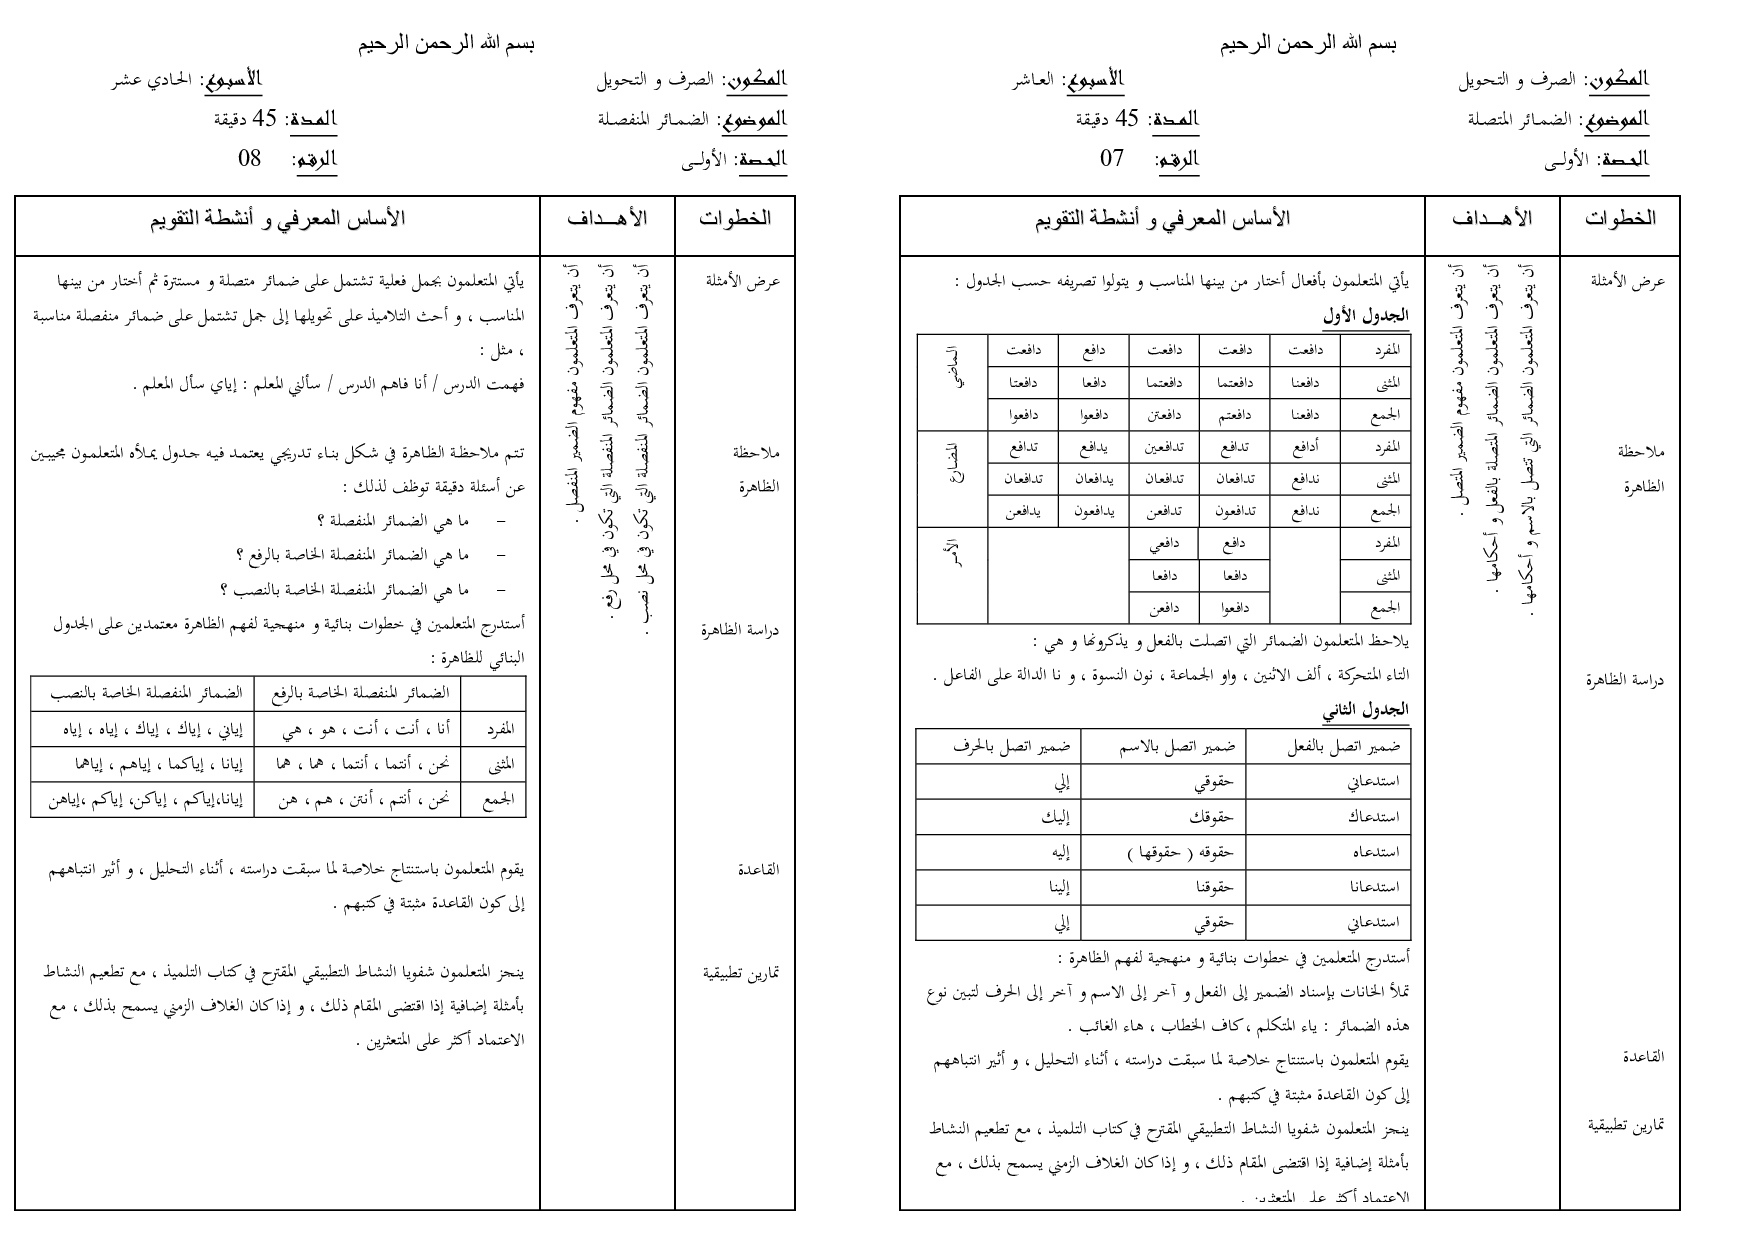 بسم الله الرحمن الرحيم
المكون: الصرف و التحويل الأسبوع: العاشر
الموضوع: الضمائر المتصلة المدة: 45 دقيقة
الحصة: الأولى الرقم: 07
الخطوات الأهداف الأساس المعرفي و أنشطة التقويم
عرض الأمثلة
ملاحظة
الظاهرة
دراسة الظاهرة
القاعدة
تمارين تطبيقية
أن يتعرف المتعلمون مفهوم الضمير المتصل .
أن يتعرف المتعلمون الضمائر المتصلة بالفعل و أحكامها .
أن يتعرف المتعلمون الضمائر التي تتصل بالاسم و أحكامها .
يأتي المتعلمون بأفعال أختار من بينها المناسب و يتولوا تصريفه حسب الجدول :
الجدول الأول
المفرد دافعت دافعت دافعت دافع دافعت الماضي
المثنى دافعنا دافعتما دافعتما دافعا دافعتا
الجمع دافعنا دافعتم دافعتن دافعوا دافعوا
المفرد أدافع تدافع تدافعين يدافع تدافع المضارع
المثنى ندافع تدافعان تدافعان يدافعان تدافعان
الجمع ندافع تدافعون تدافعن يدافعون يدافعن
المفرد دافع دافعي الأمر
المثنى دافعا دافعا
الجمع دافعوا دافعن
يلاحظ المتعلمون الضمائر التي اتصلت بالفعل و يذكرونها و هي :
التاء المتحركة ، ألف الاثنين ، واو الجماعة ، نون النسوة ، و نا الدالة على الفاعل .
الجدول الثاني
ضمير اتصل بالفعل ضمير اتصل بالاسم ضمير اتصل بالحرف
استدعاني حقوقي إلي
استدعاك حقوقك إليك
استدعاه حقوقه ( حقوقها ) إليه
استدعانا حقوقنا إلينا
استدعاني حقوقي إلي
أستدرج المتعلمين في خطوات بنائية و منهجية لفهم الظاهرة :
تملأ الخانات بإسناد الضمير إلى الفعل و آخر إلى الاسم و آخر إلى الحرف لتبين نوع
هذه الضمائر : ياء المتكلم ، كاف الخطاب ، هاء الغائب .
يقوم المتعلمون باستنتاج خلاصة لما سبقت دراسته ، أثناء التحليل ، و أثير انتباههم
إلى كون القاعدة مثبتة في كتبهم .
ينجز المتعلمون شفويا النشاط التطبيقي المقترح في كتاب التلميذ ، مع تطعيم النشاط
بأمثلة إضافية إذا اقتضى المقام ذلك ، و إذا كان الغلاف الزمني يسمح بذلك ، مع
الاعتماد أكثر على المتعثرين .
بسم الله الرحمن الرحيم
المكون: الصرف و التحويل الأسبوع: الحادي عشر
الموضوع: الضمائر المنفصلة المدة: 45 دقيقة
الحصة: الأولى الرقم: 08
الخطوات الأهداف الأساس المعرفي و أنشطة التقويم
عرض الأمثلة
ملاحظة
الظاهرة
دراسة الظاهرة
القاعدة
تمارين تطبيقية
أن يتعرف المتعلمون مفهوم الضمير المنفصل .
أن يتعرف المتعلمون الضمائر المنفصلة التي تكون في محل رفع .
أن يتعرف المتعلمون الضمائر المنفصلة التي تكون في محل نصب .
يأتي المتعلمون بجمل فعلية تشتمل على ضمائر متصلة و مستترة ثم أختار من بينها
المناسب ، و أحث التلاميذ على تحويلها إلى جمل تشتمل على ضمائر منفصلة مناسبة
، مثل :
فهمت الدرس / أنا فاهم الدرس / سألني المعلم : إياي سأل المعلم .
تتم ملاحظة الظاهرة في شكل بناء تدريجي يعتمد فيه جدول يملأه المتعلمون مجيبين
عن أسئلة دقيقة توظف لذلك :
– ما هي الضمائر المنفصلة ؟
– ما هي الضمائر المنفصلة الخاصة بالرفع ؟
– ما هي الضمائر المنفصلة الخاصة بالنصب ؟
أستدرج المتعلمين في خطوات بنائية و منهجية لفهم الظاهرة معتمدين على الجدول
البنائي للظاهرة :
الضمائر المنفصلة الخاصة بالرفع الضمائر المنفصلة الخاصة بالنصب
المفرد أنا ، أنت ، أنت ، هو ، هي إياني ، إياك ، إياك ، إياه ، إياه
المثنى نحن ، أنتما ، أنتما ، هما ، هما إيانا ، إياكما ، إياهم ، إياهما
الجمع نحن ، أنتم ، أنتن ، هم ، هن إيانا،إياكم ، إياكن، إياكم ،إياهن
يقوم المتعلمون باستنتاج خلاصة لما سبقت دراسته ، أثناء التحليل ، و أثير انتباههم
إلى كون القاعدة مثبتة في كتبهم .
ينجز المتعلمون شفويا النشاط التطبيقي المقترح في كتاب التلميذ ، مع تطعيم النشاط
بأمثلة إضافية إذا اقتضى المقام ذلك ، و إذا كان الغلاف الزمني يسمح بذلك ، مع
الاعتماد أكثر على المتعثرين .